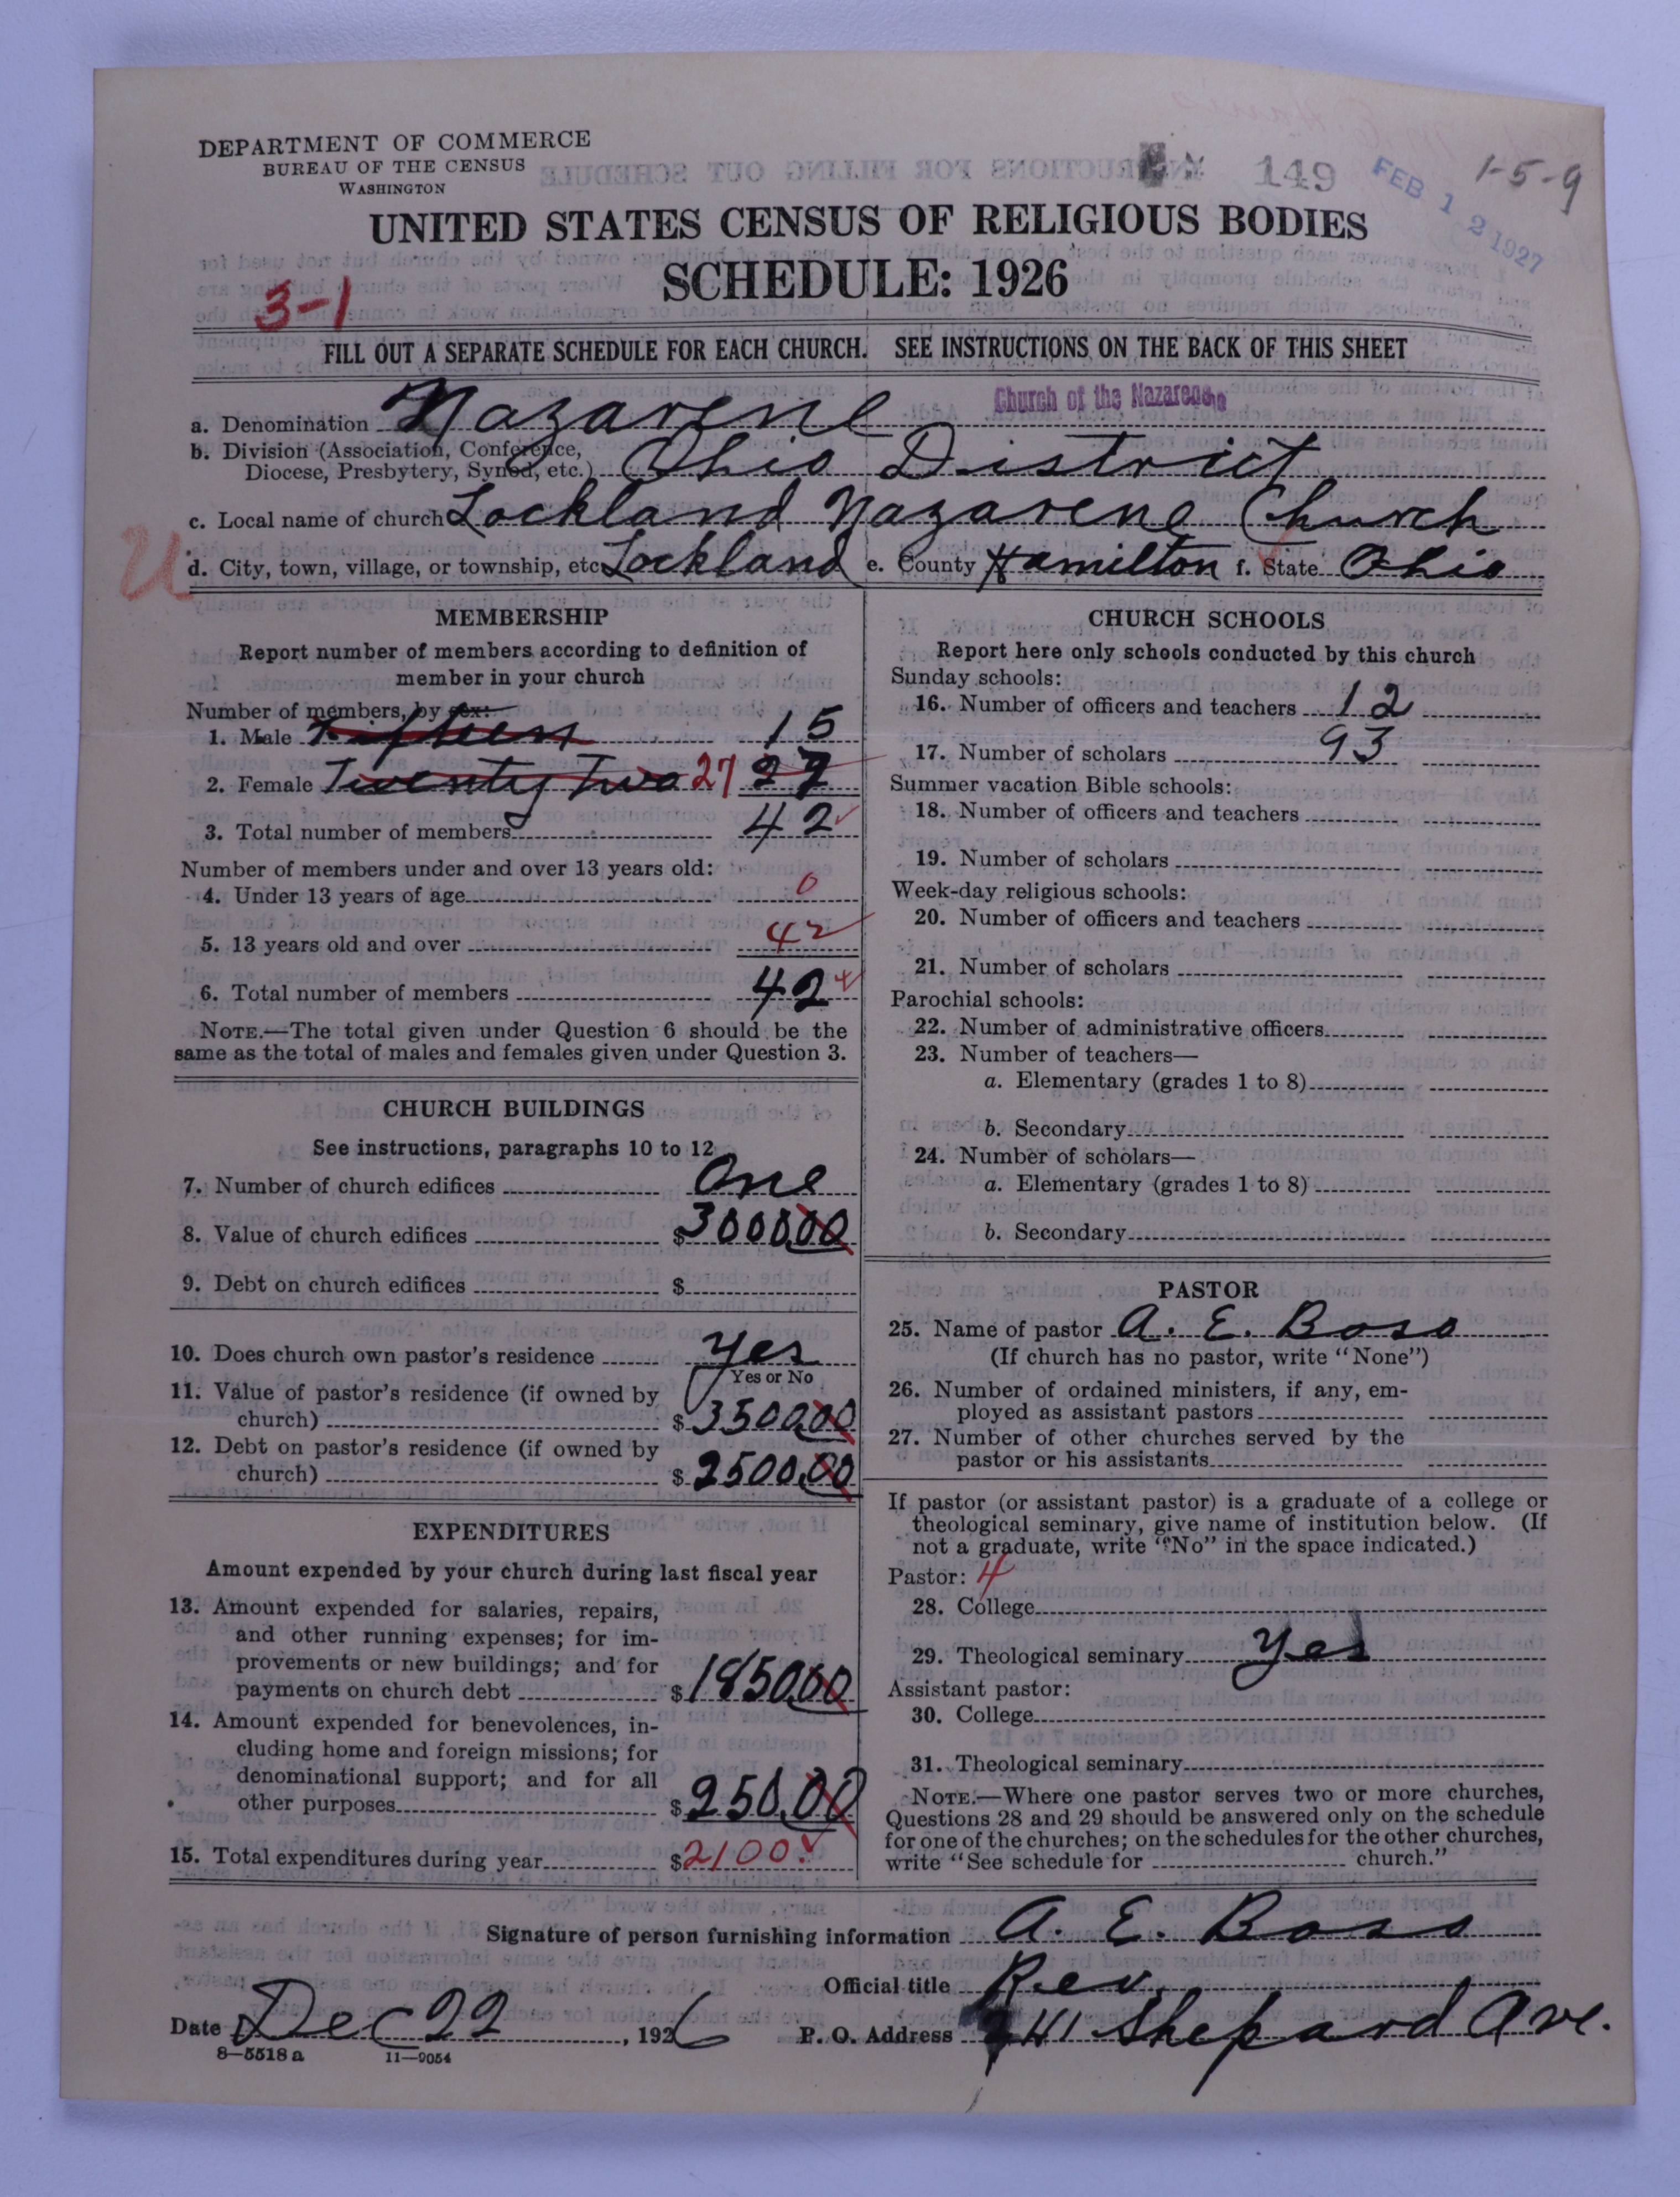 DEPARTMENT OF COMMERCE
BUREAU OF THE CENSUS
WASHINGTON
149
FEB 12 1927
1-5-9
UNITED STATES CENSUS OF RELIGIOUS BODIES
SCHEDULE: 1926
3-1
FILL OUT A SEPARATE SCHEDULE FOR EACH CHURCH. SEE INSTRUCTIONS ON THE BACK OF THIS SHEET
Church of the Nazarene
a. Denomination Nazarene
b. Division (Association, Conference,
Diocese, Presbytery, Synod, etc.) Ohio District
c. Local name of church Lockland Nazarene Church
U
d. City, town, village, or township, etc. Lockland e. County Hamilton f. State Ohio
MEMBERSHIP
Report number of members according to definition of
member in your church
Number of members, by sex:
1. Male Fifteen 15
2. Female Twenty Two 27 27
3. Total number of members 42
Number of members under and over 13 years old:
4. Under 13 years of age 0
5. 13 years old and over 42
6. Total number of members 42
NOTE.—The total given under Question 6 should be the
same as the total of males and females given under Question 3.
CHURCH BUILDINGS
See instructions, paragraphs 10 to 12
7. Number of church edifices One
8. Value of church edifices $3000.00
9. Debt on church edifices $
10. Does church own pastor's residence Yes
Yes or No
11. Value of pastor's residence (if owned by
church) $3500.00
12. Debt on pastor's residence (if owned by
church) $2500.00
EXPENDITURES
Amount expended by your church during last fiscal year
13. Amount expended for salaries, repairs,
and other running expenses; for im-
provements or new buildings; and for
payments on church debt $1850.00
14. Amount expended for benevolences, in-
cluding home and foreign missions; for
denominational support; and for all
other purposes $250.00
15. Total expenditures during year $2100.
CHURCH SCHOOLS
Report here only schools conducted by this church
Sunday schools:
16. Number of officers and teachers 12
17. Number of scholars 93
Summer vacation Bible schools:
18. Number of officers and teachers
19. Number of scholars
Week-day religious schools:
20. Number of officers and teachers
21. Number of scholars
Parochial schools:
22. Number of administrative officers
23. Number of teachers—
a. Elementary (grades 1 to 8)
b. Secondary
24. Number of scholars—
a. Elementary (grades 1 to 8)
b. Secondary
PASTOR
25. Name of pastor A. E. Boso
(If church has no pastor, write "None")
26. Number of ordained ministers, if any, em-
ployed as assistant pastors
27. Number of other churches served by the
pastor or his assistants
If pastor (or assistant pastor) is a graduate of a college or
theological seminary, give name of institution below. (If
not a graduate, write "No" in the space indicated.)
Pastor: 4
28. College
29. Theological seminary Yes
Assistant pastor:
30. College
31. Theological seminary
NOTE.—Where one pastor serves two or more churches,
Questions 28 and 29 should be answered only on the schedule
for one of the churches; on the schedules for the other churches,
write "See schedule for church."
Signature of person furnishing information A. E. Boso
Official title Rev.
Date Dec 22, 1926 P. O. Address 41 Shepard Ave.
8—5518 a 11—9054